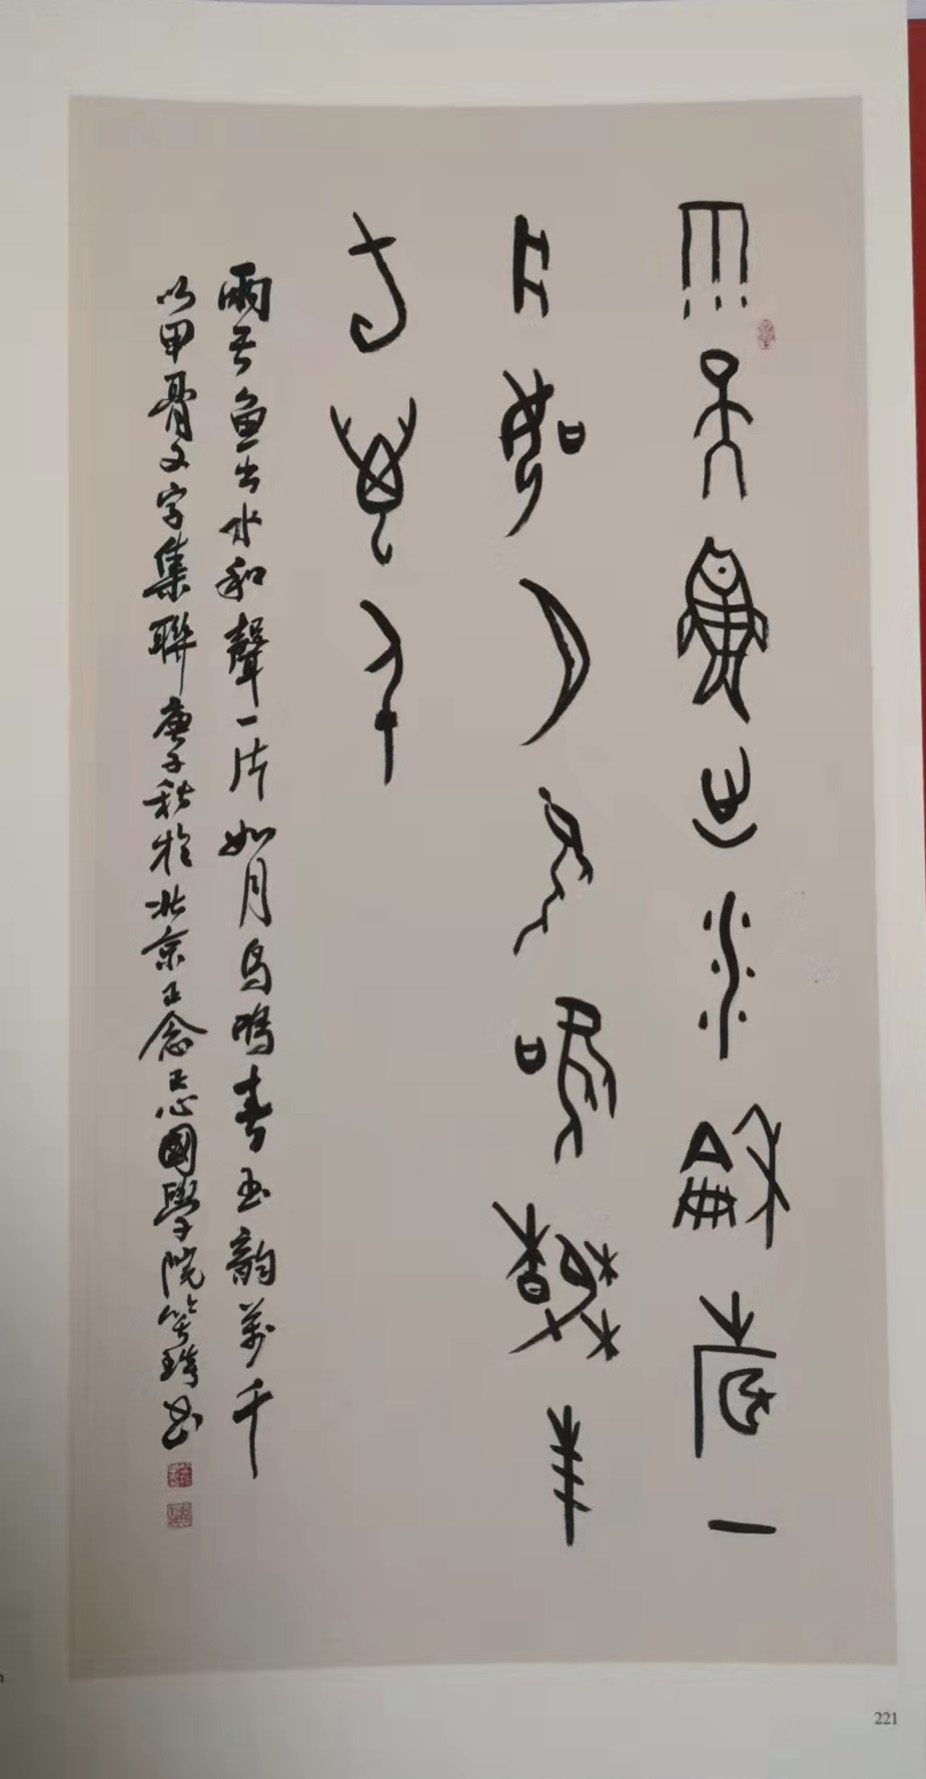 雨天魚出水龢聲一
片如月鳥鳴春玉
韵萬千
雨魚出水和聲一片如月鳥鳴春玉韵萬千
以甲骨文字集聯庚子秋於北京正念正心國學院書
221